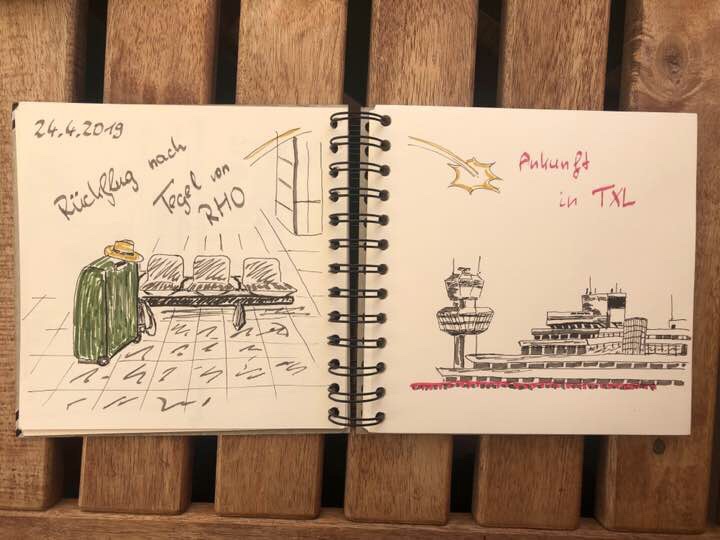 24.4.2019
Rückflug nach
Tegel von
RHO
Ankunft
in TXL